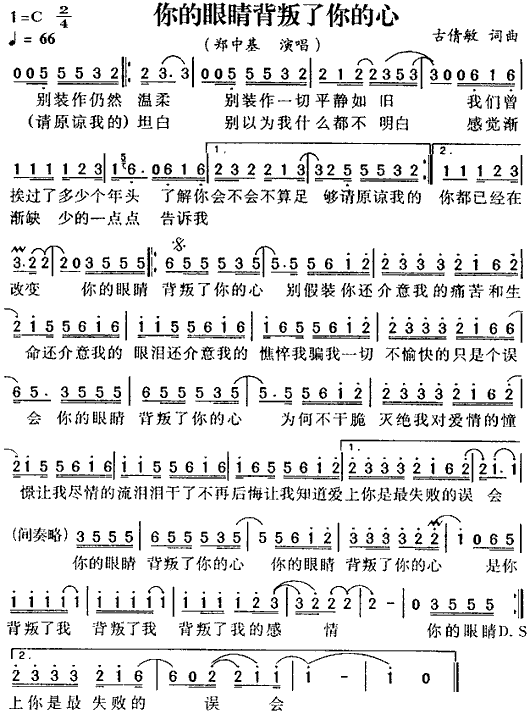 你的眼睛背叛了你的心
1=C 2/4
♩= 66
(郑中基 演唱)
古倩敏 词曲
0 0 5 5 5 3 2 :‖: 2 3· 3 | 0 0 5 5 5 3 2 | 2 1 2 2 3 5 3 | 3 0 0 6 1 6 |
别装作仍然 温柔 别装作一切平静如 旧 我们曾
(请原谅我的) 坦白 别以为我什么都不 明白 感觉渐
1 1 1 1 2 3 | 1 6· 0 6 1 6 | 1. 2 3 2 2 1 3 | 3 2 5 5 5 3 2 :‖ 2. 1 1 1 2 3 |
挨过了多少个年头 了解你会不会不算足 够请原谅我的 你都已经在
渐缺 少的一点点 告诉我
3· 2 2 | 2 0 3 5 5 5 :‖: 6 5 5 3 5 5 | 5· 5 5 6 1 2 | 2 3 3 3 2 1 6 2 |
改变 你的眼睛 背叛了你的心 别假装你还介意我的痛苦和生
2 1 5 5 6 1 6 | 1 1 5 5 6 1 6 | 1 1 5 5 6 1 2 | 2· 3 3 3 2 1 6 6 |
命还介意我的 眼泪还介意我的 憔悴我骗我一切 不愉快的只是个误
6 5· 3 5 5 5 | 6 5 5 3 5 5 | 5· 5 5 6 1 2 | 2 3 3 3 2 1 6 2 |
会 你的眼睛 背叛了你的心 为何不干脆 灭绝我对爱情的憧
2 1 5 5 6 1 6 | 1 1 5 5 6 1 6 | 1 1 5 5 6 1 2 | 1. 2 3 3 3 2 1 6 2 | 2 1· 1 |
憬让我尽情的流泪泪干了不再后悔让我知道爱上你是最失败的误 会
(间奏略) 3 5 5 5 | 6 5 5 3 5 5 | 5 5 6 1 2 | 2 3 3 3 2 2 | 1 0 6 5 |
你的眼睛 背叛了你的心 你的眼睛 背叛了你的心 是你
1 1 1 1 | 1 1 1 1 | 1 1 1 1 2 3 | 3 2 2 2 | 2 - | 0 3 5 5 5 :‖
背叛了我 背叛了我 背叛了我的感 情 你的眼睛D.S
2. 2 3 3 3 2 1 6 | 6 0 2 2 1 1 | 1 - | 1 0 ‖
上你是最 失败的 误 会